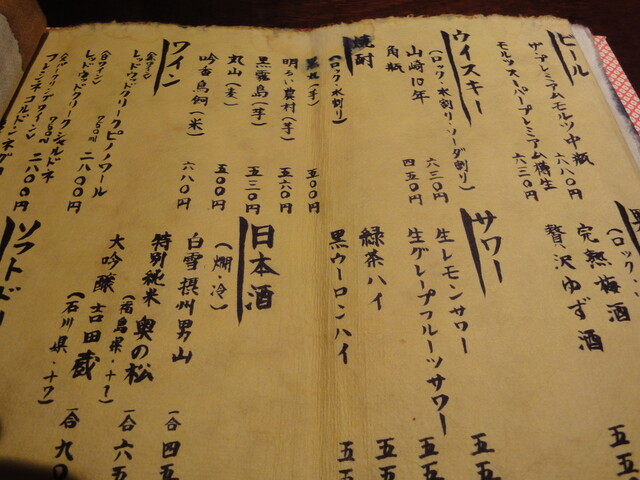 ビール
ザ・プレミアムモルツ中瓶 六八〇円
モルツスーパープレミアム樽生 六三〇円
ウイスキー
(ロック・水割り・ソーダ割り)
山崎10年 六三〇円
角瓶 四五〇円
焼酎
(ロック・水割り)
五〇〇円
明るい農村(芋) 五六〇円
黒霧島(芋) 五三〇円
丸山(麦) 五〇〇円
吟香鳥飼(米) 六八〇円
ワイン
レッドウッドクリークピノノワール
750ml 二八〇〇円
(白ワイン)
レッドウッドクリークシャルドネ
750ml 二八〇〇円
二八〇〇円
(ロック・
完熟梅酒
贅沢ゆず酒
サワー
生レモンサワー 五
生グレープフルーツサワー 五五
緑茶ハイ 五五
黒ウーロンハイ 五五
日本酒
(燗・冷)
白雪摂州男山 一合 四五
特別純米 奥の松
(福島県・+1) 一合 六五
大吟醸 吉田蔵
(石川県・+7) 一合 九〇
ソフトドリ